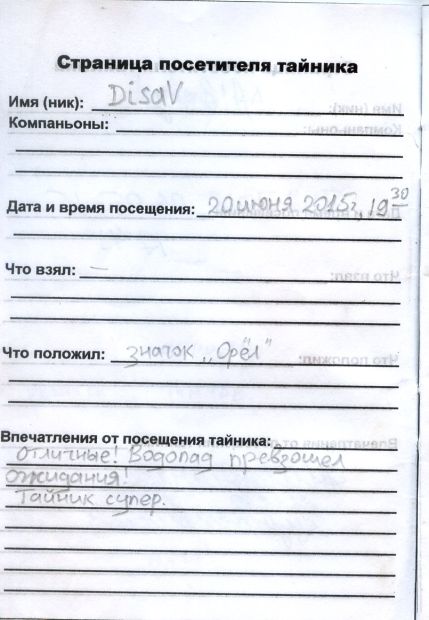 Страница посетителя тайника
Имя (ник): DisaV
Компаньоны:
Дата и время посещения: 20 июня 2015г, 19 30
Что взял: —
Что положил: значок „Орёл"
Впечатления от посещения тайника:
Отличные! Водопад превзошел
ожидания!
Тайник супер.